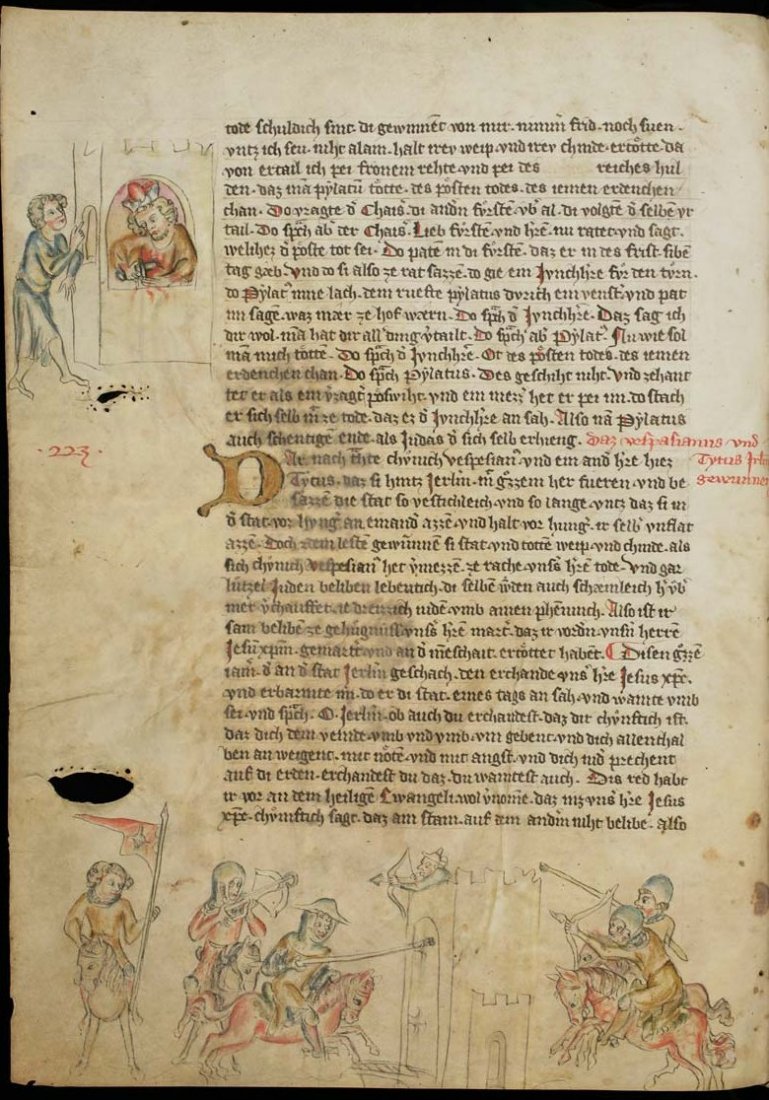 tode schuldich sint · di gewinnēt von mir · nimm̄ frid · noch suen ·
vntz ich seu · niht alain · halt irev weip · vnd irev chinde · ertotte · da
von ertail ich pei fronem rehte · vnd pei des reiches hul
den · daz mā pylatū totte · des posten todes · des iemen erdenchen
chan · Do vragte d̄ Chais̄ · di andn̄ fvrsten · vb̄ al · di volgtē d̄ selbē vr
tail · Do sp̄ch ab̄ der Chais̄ · Lieb fvrstē · vnd hr̄e · nu ratet · vnd sagt ·
welihez d̄ poste tot sei · Do patē in di fvrstē · daz er in des frist · siben
tag gæb · vnd do si also ze rat sazzē · do gie ein Jvnchhr̄e fvr den tvrn ·
do Pylat᷒ inne lach · dem rueft pylatus dvrich ein venst᷒ · vnd pat
im sagē · waz mær ze hof wærn · Do sp̄ch d̄ Jvnchhr̄e · Daz sag ich
dir wol · mā hat dir all ding v̄tailt · Do sp̄ch ab̄ Pylat᷒ · Nu wie sol
mā mich totte · Do sp̄ch d̄ Jvnchhr̄e · Ot des posten todes · des iemen
erdenchen chan · Do sp̄ch Pylatus · Des geschiht niht · vnd zehant
tet er als ein v̄zagt᷒ poswiht · vnd ein mezz᷒ het er pei im · do stach
er sich selb in̄ ze tode · daz ez d̄ Jvnchhr̄e an sah · Also nā Pylatus
auch schentige ende · als Judas d̄ sich selb erhieng · daz vespasianus vnd
· 223 · Tytus Jrlm̄
gewunnen
Dar nach chvnich vespesian᷒ · vnd ein and᷒ hr̄e hiez
Tytus · daz si hintz Jerlm̄ · m̄ grzzem her fueren · vnd be
sazzē die stat so vestichleich · vnd so lange · vntz daz si in
d̄ stat · vor hvng᷒ · an einand᷒ azzē · vnd halt vor hung᷒ · ir selb᷒ vnflat
azzē · Doch zdem lestē gewunnē si stat · vnd tottē weip · vnd chinde · als
sich chvnich vespesian᷒ het v̄mezzē · ze rache · vns̄s hr̄en tode · vnd gar
lutzel Juden beliben lebentich · di selbē wr̄den auch schæmleich
mer v̄chauffet · ie dreizzich iudē · vmb ainen phennich · Also ist ir
sam belibē ze gehugnuss · vns̄s hr̄en mart᷒ · daz ir vordn̄ · vnsn̄ herren
Jesū xp̄m · gemart᷒t · vnd an d̄ m̄escheit · ertottet habent · Disen grzzē
iam᷒ · d̄ an d̄ stat Jerlm̄ geschach · den erchande vns᷒ hr̄e Jesus xp̄c ·
vnd erbarmte im · do er di stat · eines tags an sah · vnd wainte vmb
sei · vnd sp̄ch · O · Jerlm̄ · ob auch du erchandest · daz dir chvnftich ist ·
daz dich dein veinde · vmb vnd vmb · vm gebent · vnd dich allenthal
ben an weigent · mit nōte · vnd mit angst · vnd dich nid᷒ prechent
auf di erden · erchandest du daz · du waintest auch · Dis red habt
ir vor an dem heiligē Ewangeli · wol v̄nome · daz inz vns᷒ hr̄e Jesus
xp̄c · chvmftich sagt · daz ain stain · auf dem andm̄ niht belibe · also